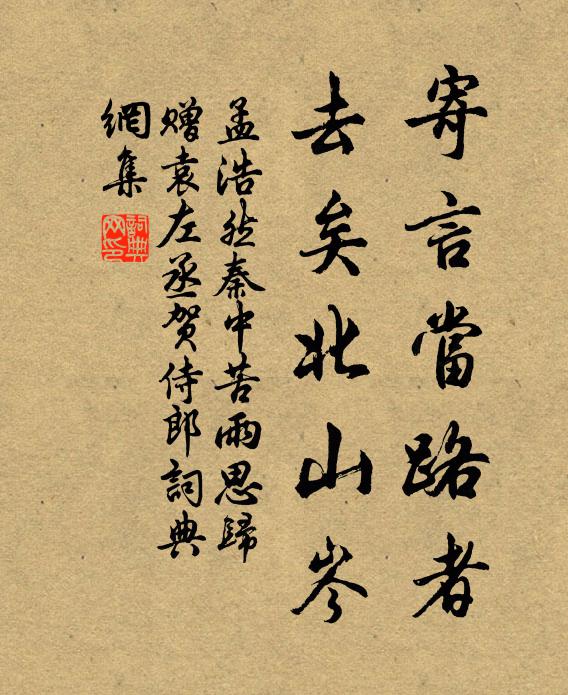 寄言當路者
去矣北山岑
孟浩然秦中苦雨思歸
贈袁左丞賀侍郎詞典
網集
詞典
网印